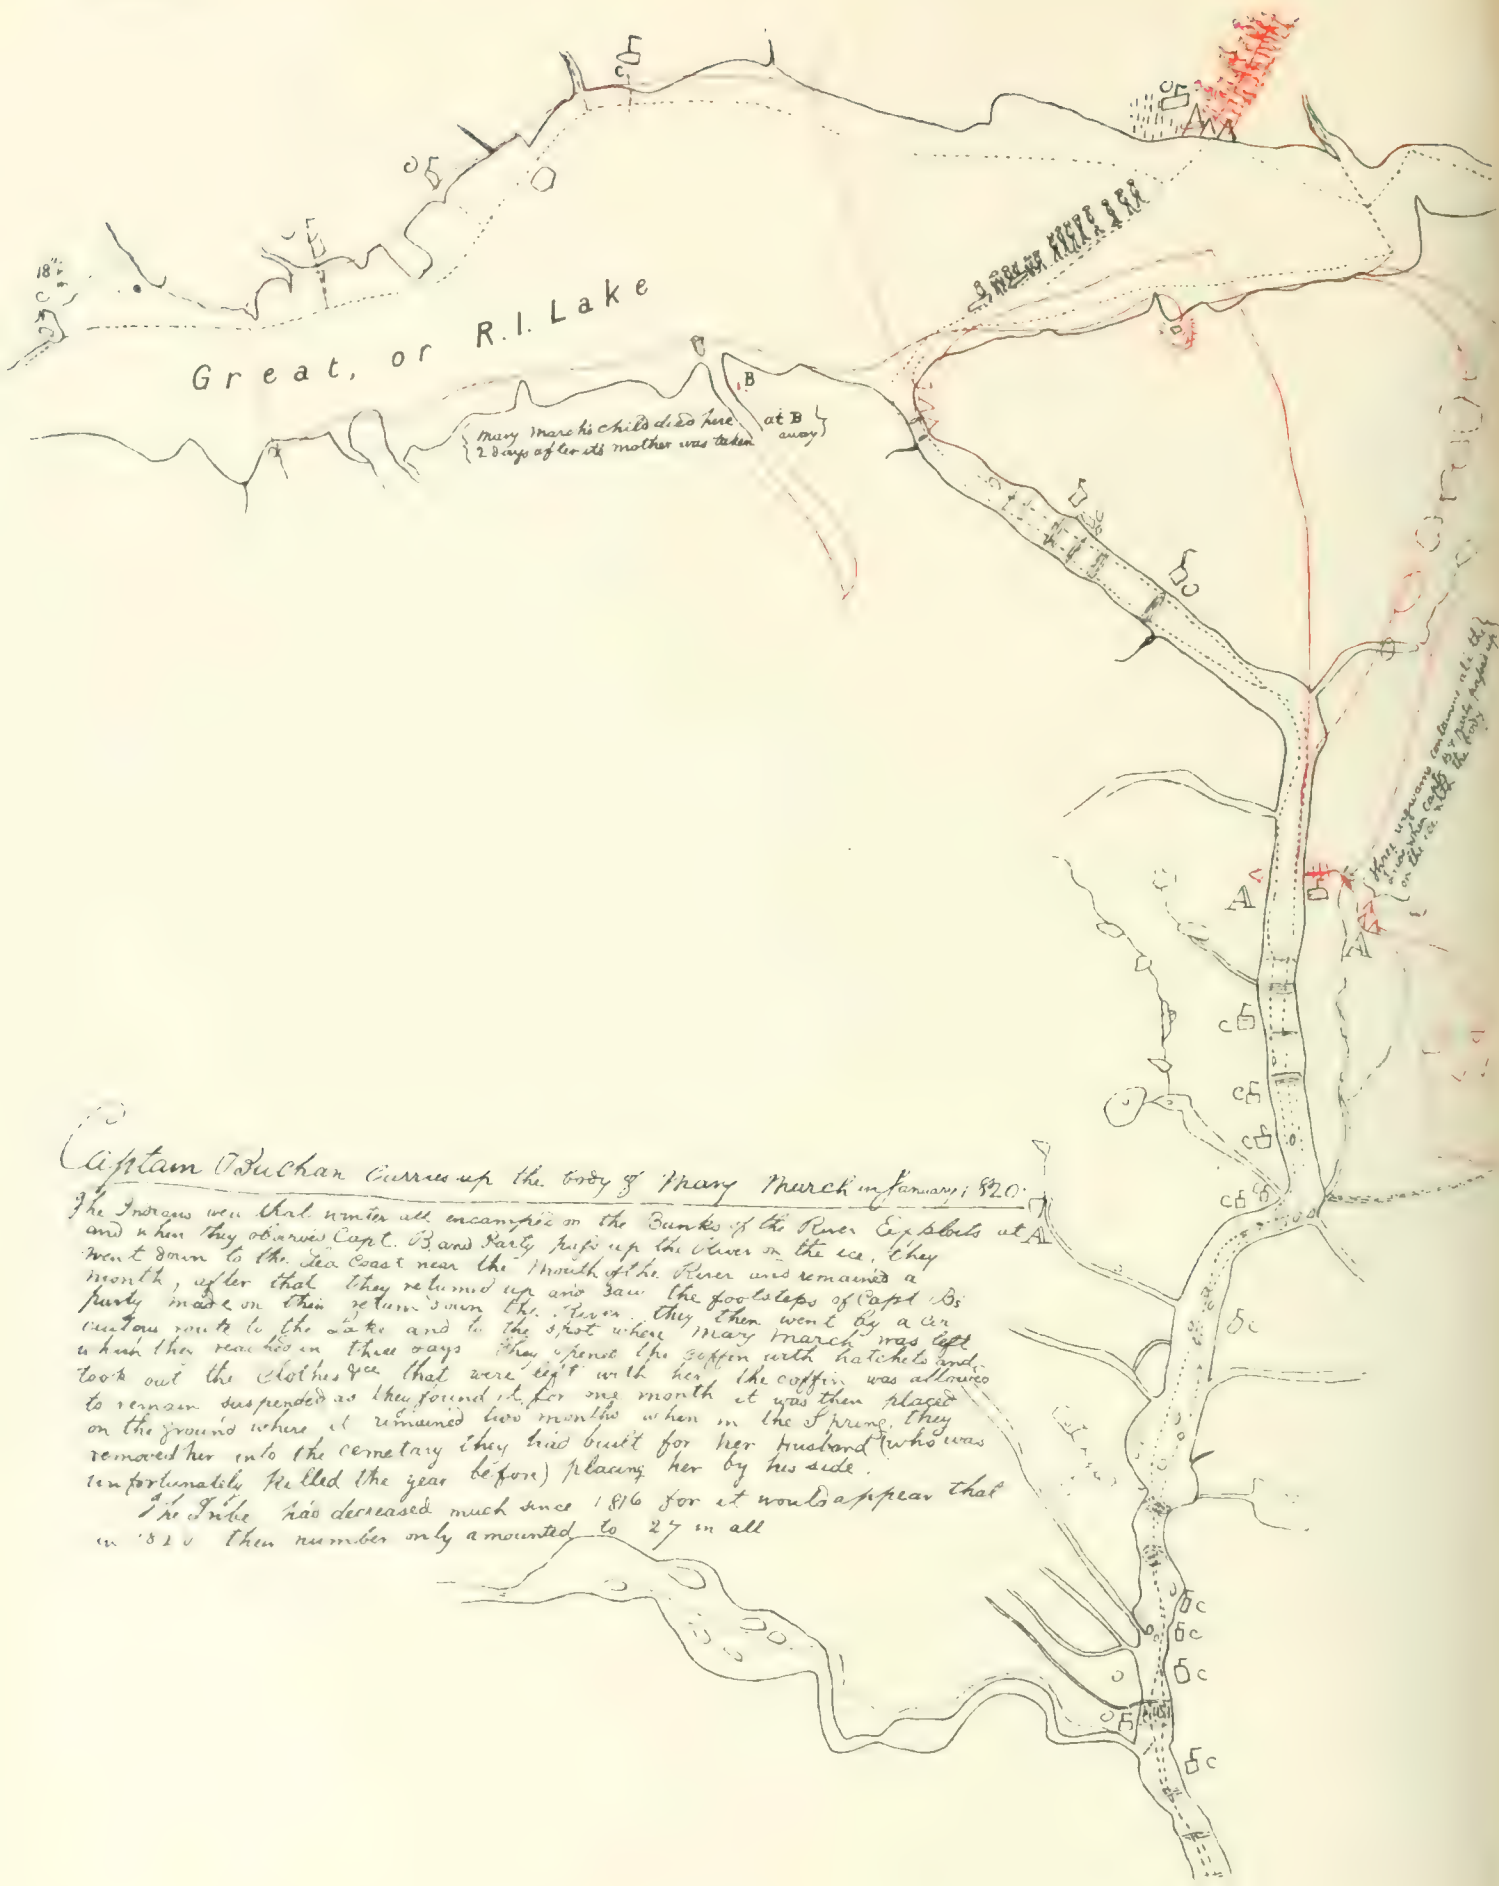 18
Great, or R.I. Lake
B
{ Mary March's child died here at B }
{ 2 days after its mother was taken away }
three wigwams containing all the
tribe when Capt B & party passed up
on the ice with the body
A
A
C
C
C
C
Captain Buchan Carries up the body of Mary March in January 1820.
The Indians were that winter all encamped on the Banks of the River Exploits at A
and when they observed Capt. B. and Party pass up the River on the ice, they
went down to the Sea Coast near the Mouth of the River and remained a
month, after that they returned up and saw the footsteps of Capt Bs
party made on their return down the River. they then went by a cir
cuitous route to the Lake and to the spot where Mary March was left
which they reached in three days They opened the coffin with hatchets and
took out the clothes &ce that were left with her the coffin was allowed
to remain suspended as they found it for one month it was then placed
on the ground where it remained two months when in the Spring, they
removed her into the cemetary they had built for her Husband (who was
unfortunately killed the year before) placing her by his side.
The Tribe had decreased much since 1816 for it would appear that
in 1820 their number only amounted to 27 in all
A
C
C
C
C
C